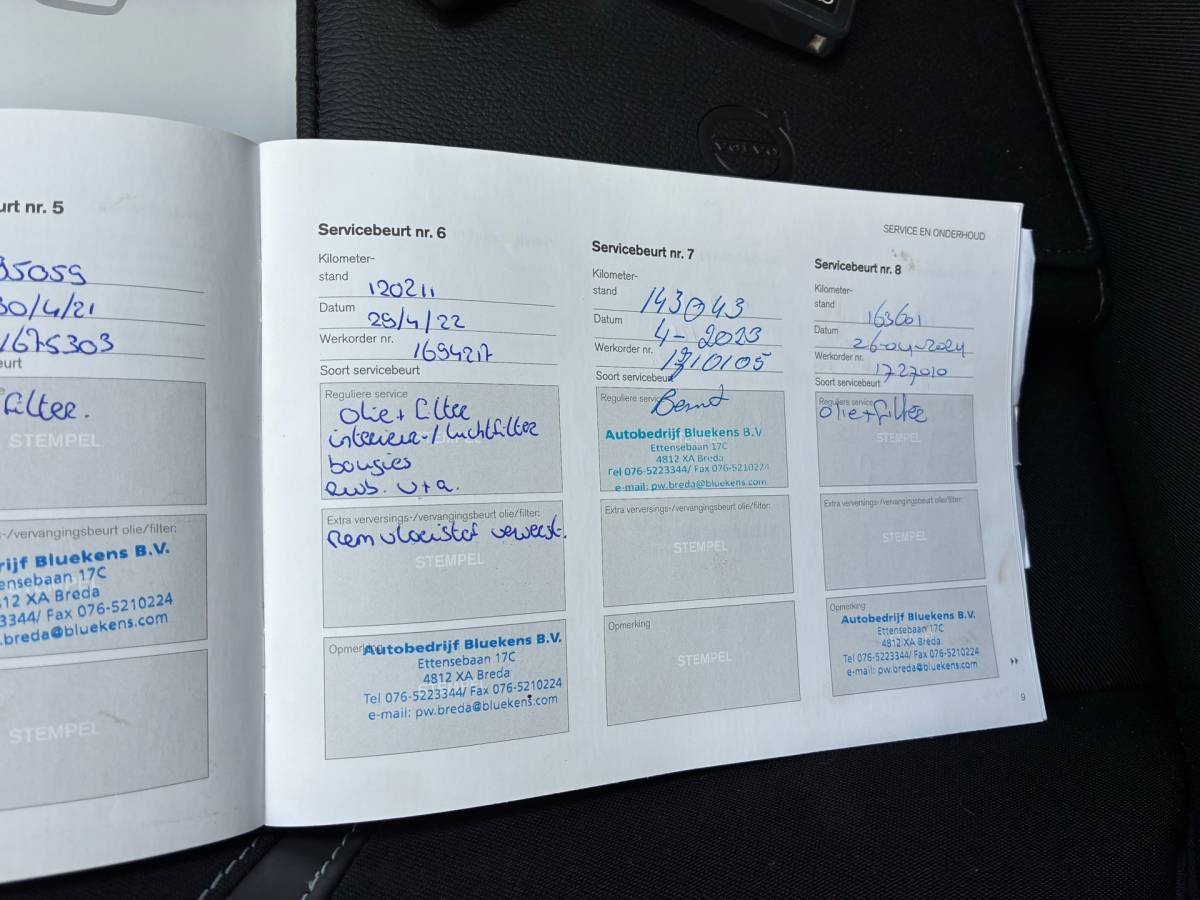 VOLVO
urt nr. 5
95059
30/4/21
1675303
eurt
filter.
STEMPEL
s-/vervangingsbeurt olie/filter:
rijf Bluekens B.V.
ensebaan 17C
812 XA Breda
3344/ Fax 076-5210224
w.breda@bluekens.com
STEMPEL
Servicebeurt nr. 6
Kilometer-
stand 120211
Datum 29/4/22
Werkorder nr. 1694217
Soort servicebeurt
Reguliere service
olie + filter
interieur-/luchtfilter
bougies
Rwb. v+a.
Extra verversings-/vervangingsbeurt olie/filter:
Remvloeistof ververst.
STEMPEL
Opmerking
Autobedrijf Bluekens B.V.
Ettensebaan 17C
4812 XA Breda
Tel 076-5223344/ Fax 076-5210224
e-mail: pw.breda@bluekens.com
SERVICE EN ONDERHOUD
Servicebeurt nr. 7
Kilometer-
stand 143043
Datum 4-2023
Werkorder nr. 1710105
Soort servicebeurt
Reguliere service
Autobedrijf Bluekens B.V.
Ettensebaan 17C
4812 XA Breda
Tel 076-5223344/ Fax 076-5210224
e-mail: pw.breda@bluekens.com
Extra verversings-/vervangingsbeurt olie/filter:
STEMPEL
Opmerking
STEMPEL
Servicebeurt nr. 8
Kilometer-
stand 163601
Datum 26-04-2024
Werkorder nr. 1727010
Soort servicebeurt
Reguliere service
olie+filter
STEMPEL
Extra verversings-/vervangingsbeurt olie/filter:
STEMPEL
Opmerking
Autobedrijf Bluekens B.V.
Ettensebaan 17C
4812 XA Breda
Tel 076-5223344/ Fax 076-5210224
e-mail: pw.breda@bluekens.com
9